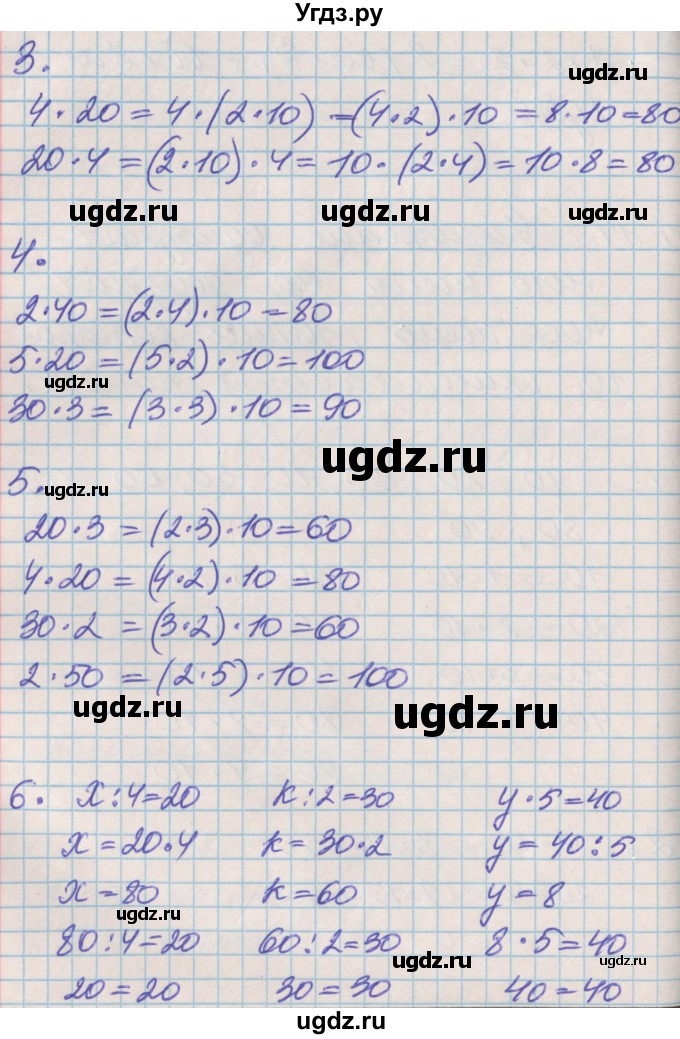 Угдз.ру
3.
ugdz.ru
4 · 20 = 4 · (2 · 10) = (4 · 2) · 10 = 8 · 10 = 80
20 · 4 = (2 · 10) · 4 = 10 · (2 · 4) = 10 · 8 = 80
ugdz.ru ugdz.ru ugdz.ru
4.
2 · 40 = (2 · 4) · 10 = 80
5 · 20 = (5 · 2) · 10 = 100
ugdz.ru
30 · 3 = (3 · 3) · 10 = 90
ugdz.ru
5. ugdz.ru
20 · 3 = (2 · 3) · 10 = 60
4 · 20 = (4 · 2) · 10 = 80
30 · 2 = (3 · 2) · 10 = 60
2 · 50 = (2 · 5) · 10 = 100
ugdz.ru ugdz.ru
6. x : 4 = 20 k : 2 = 30 y · 5 = 40
x = 20 · 4 k = 30 · 2 y = 40 : 5
x = 80 k = 60 y = 8
ugdz.ru
80 : 4 = 20 60 : 2 = 30 8 · 5 = 40
ugdz.ru ugdz.ru
20 = 20 30 = 30 40 = 40
ugdz.ru